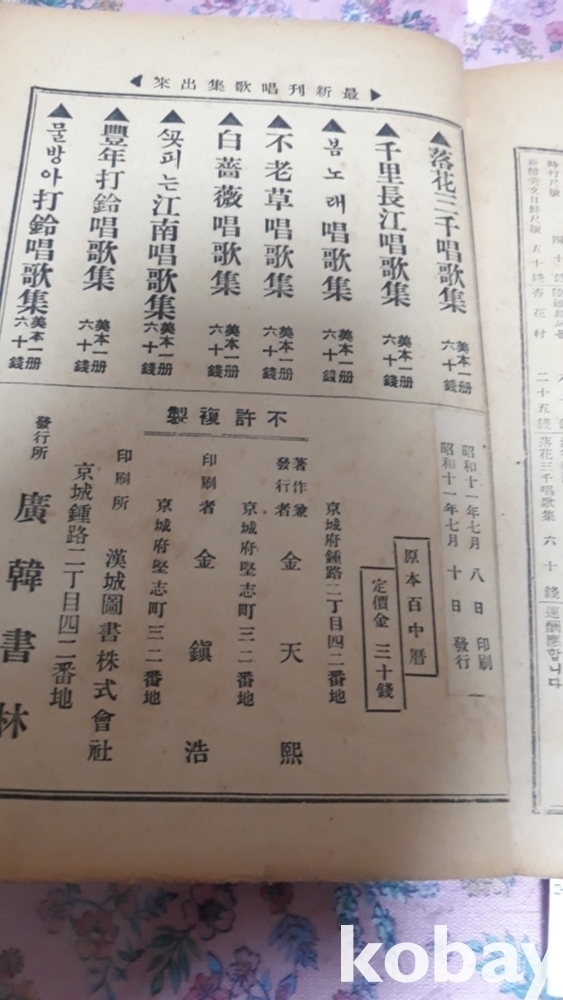 四十錢
五十錢 杏花村 二十五錢 落花三千唱歌集 六十錢
速酬應합니다
▶最新刊唱歌集出來◀
▲落花三千唱歌集 美本一册 六十錢
▲千里長江唱歌集 美本一册 六十錢
▲봄노래唱歌集 美本一册 六十錢
▲不老草唱歌集 美本一册 六十錢
▲白薔薇唱歌集 美本一册 六十錢
▲ᄭᅩᆺ피는江南唱歌集 美本一册 六十錢
▲豐年打鈴唱歌集 美本一册 六十錢
▲물방아打鈴唱歌集 美本一册 六十錢
昭和十一年七月 八日 印刷
昭和十一年七月 十日 發行
原本百中曆
定價金 三十錢
不許複製
京城府鍾路二丁目四二番地
著作兼發行者 金天熙
京城府堅志町三二番地
印刷者 金鎭浩
京城府堅志町三二番地
印刷所 漢城圖書株式會社
京城鍾路二丁目四二番地
發行所 廣韓書林
kobay